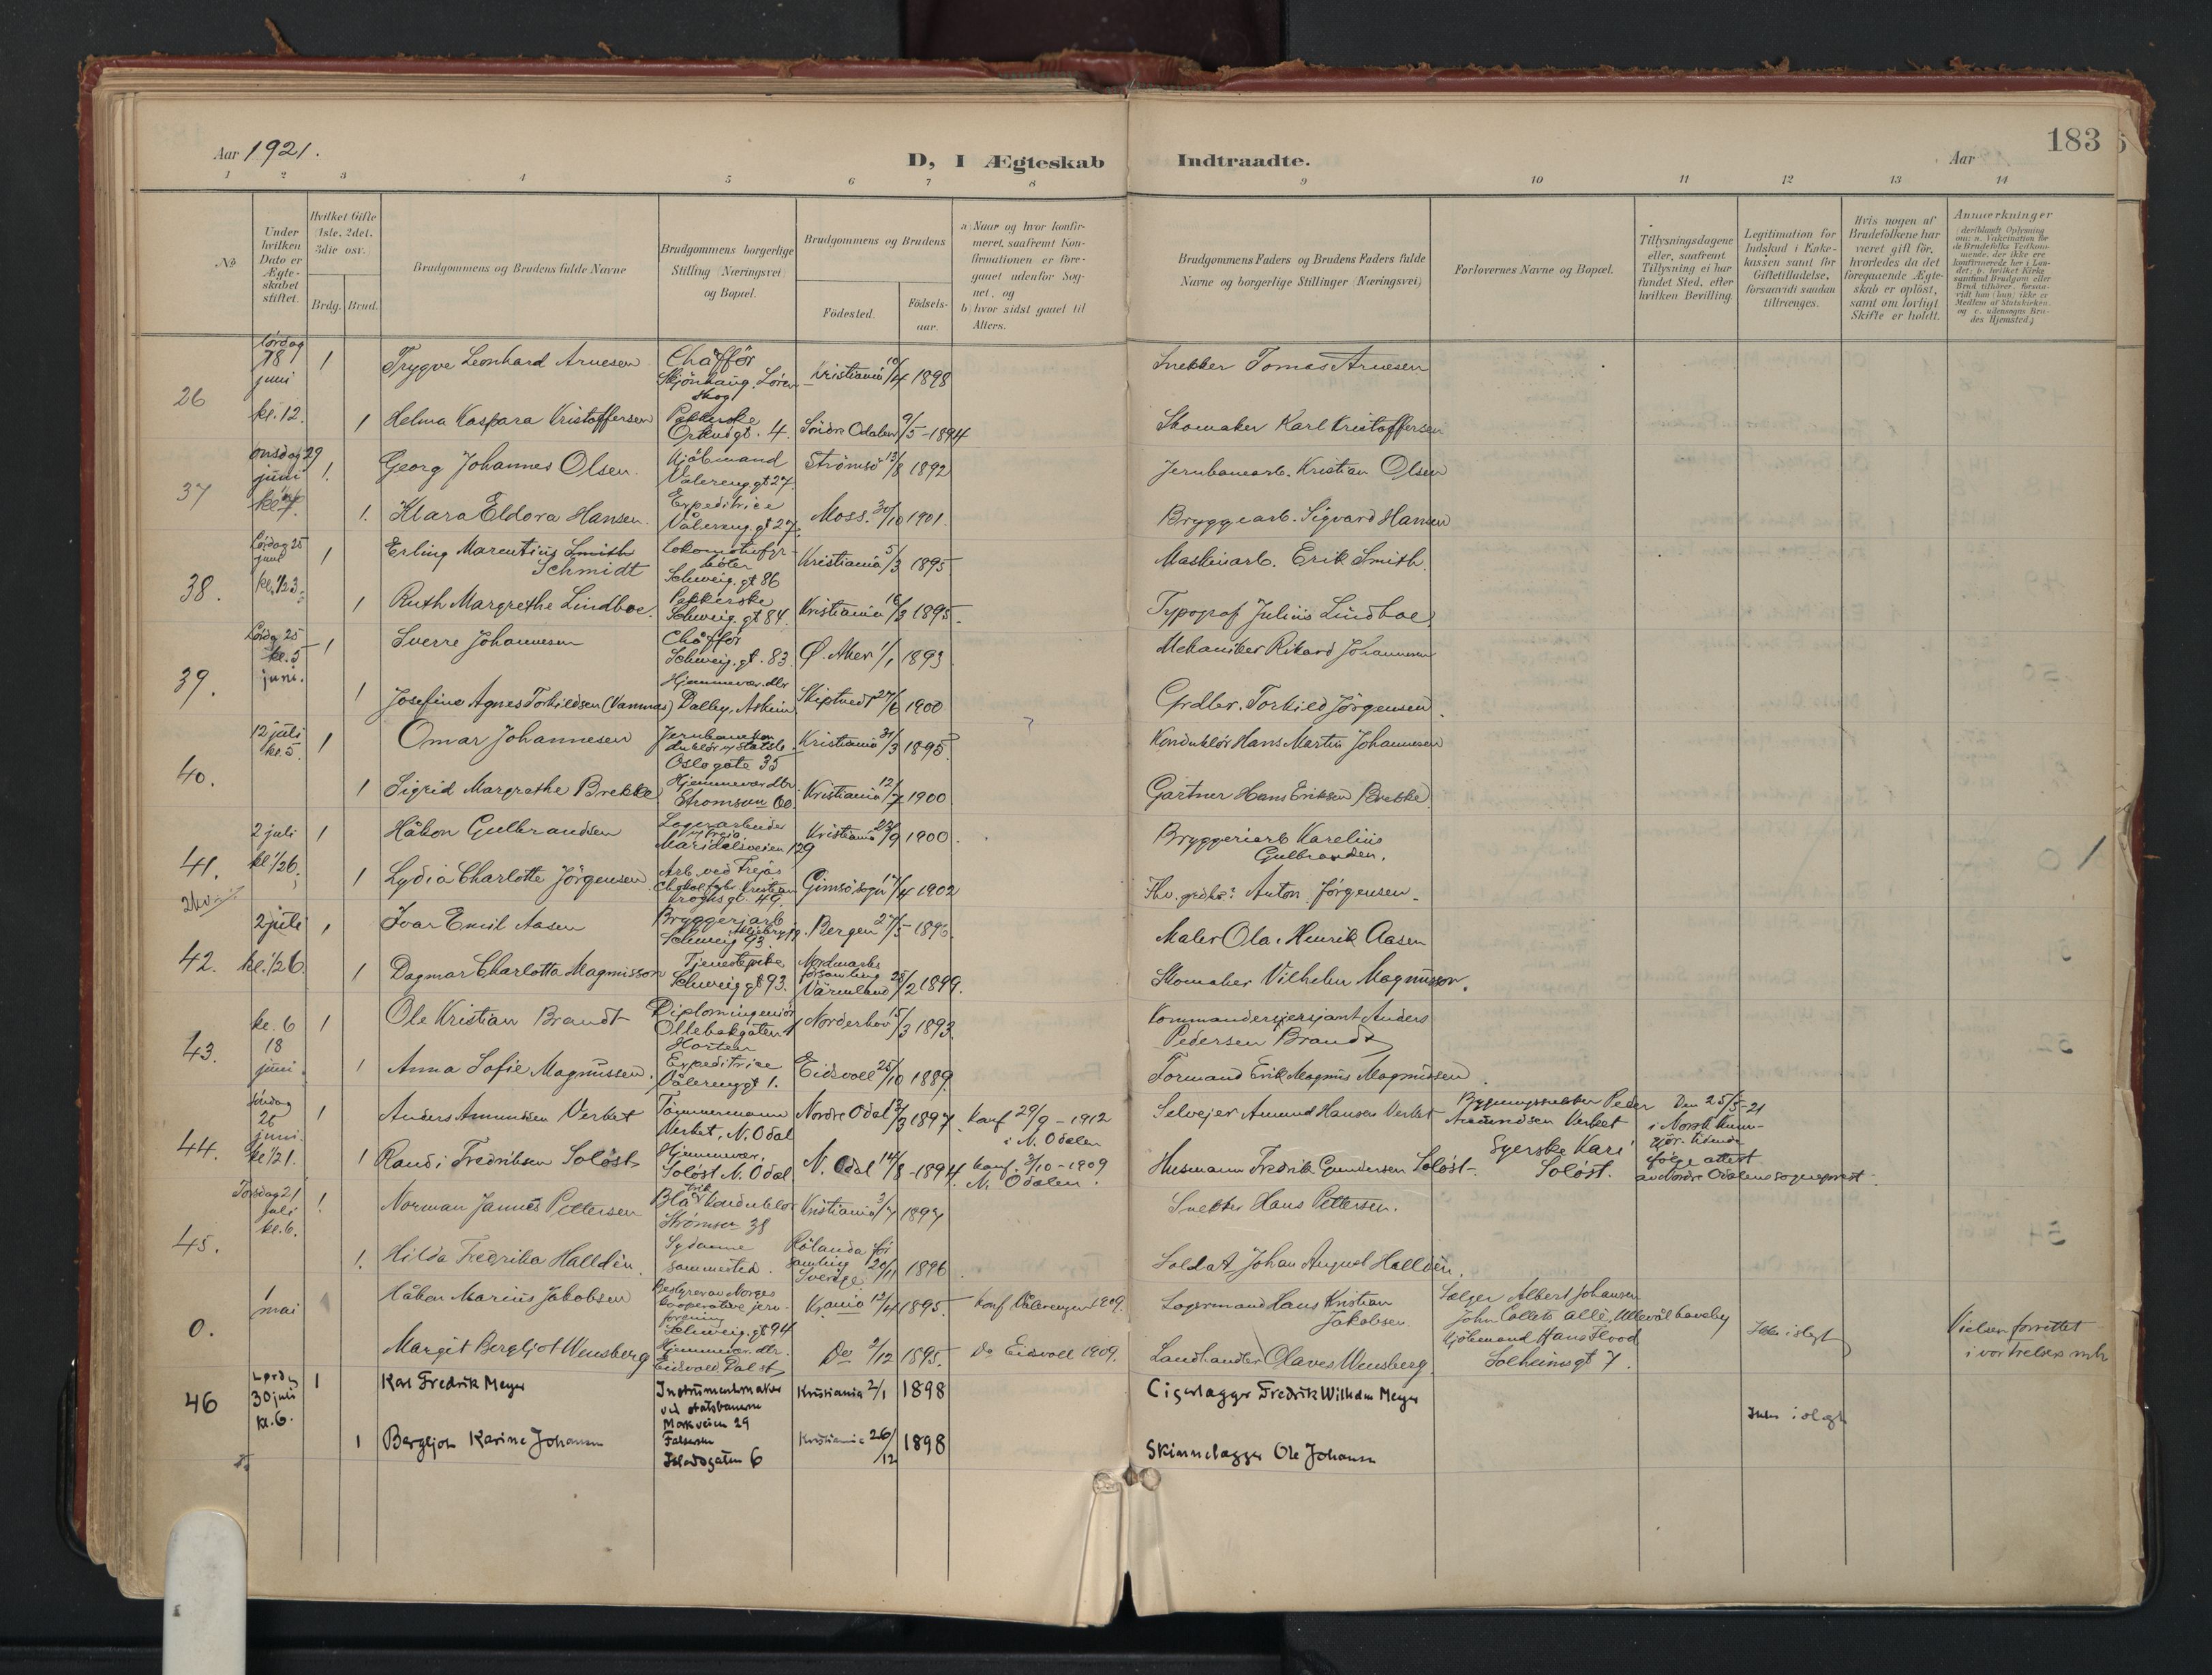 Aar 1921.
D, I Ægteskab Indtraadte.
Aar
183
1 2 3 4 5 6 7 8 9 10 11 12 13 14
No
Under hvilken Dato er Ægte-skabet stiftet.
Hvilket Gifte (1ste, 2det, 3die osv.)
Brdg. Brud.
Brudgommens og Brudens fulde Navne
Brudgommens borgerlige Stilling (Næringsvei) og Bopæl.
Brudgommens og Brudens
Fødested.
Fødsels-aar.
a) Naar og hvor konfir-meret, saafremt Kon-firmationen er fore-gaaet udenfor Sog-net, og
b) hvor sidst gaaet til Alters.
Brudgommens Faders og Brudens Faders fulde Navne og borgerlige Stillinger (Næringsvei)
Forlovernes Navne og Bopæl.
Tillysningsdagene eller, saafremt Tillysning ei har fundet Sted, efter hvilken Bevilling.
Legitimation for Indskud i Enke-kassen samt for Giftetilladelse, forsaavidt saadan tiltrænges.
Hvis nogen af Brudefolkene har været gift før, hvorledes da det foregaaende Ægte-skab er opløst, samt om lovligt Skifte er holdt.
Anmærkninger (deriblandt Oplysning om: a. Vakcination for de Brudefolks Vedkom-mende, der ikke ere konfirmerede her i Lan-det; b. hvilket Kirke-samfund Brudgom eller Brud tilhører, forsaa-vidt han (hun) ikke er Medlem af Statskirken, og c. udensogns Bru-des Hjemsted.)
26 Lørdag 18 juni kl. 12
1 Trygve Leonhard Arnesen Chaffør Skjönhaug. Lörenskog Kristiania 10/4 1898 Snekker Tomas Arnesen
1 Helma Kaspara Kristoffersen Pakkerske Orknögt. 4. Söndre Odalen 9/5 - 1894 Skomaker Karl Kristoffersen
37 onsdag 29 juni kl. 7.
1. Georg Johannes Olsen. Kjöbmand Vålereng.gt 27. Strömsö 13/8 1892 Jernbanearb. Kristian Olsen
1. Klara Eldora Hansen. Expeditrice Vålereng.gt 27. Moss. 30/10 1901. Bryggearb. Sigvard Hansen
38. Lördag 25 juni kl. 1/2 3.
1 Erling Marentius Smith Schmidt Lokomotivfyrböter Schweig.gt 86 Kristiania 5/3 1895 Maskinarb. Erik Smith.
1 Ruth Margrethe Lindboe. Pakkerske Schweig.gt 84. Kristiania 16/3 1895. Typograf Julius Lindboe.
39. Lördag 25 kl. 5 juni.
1 Sverre Johannesen Chaffør Schweig.gt. 83 Ø. Aker 1/1 1893 Mekaniker Rikard Johannesen
1 Josefine Agnes Torkildsen (Vammas) Hjemmevær. dtr Dalby, Askim Skiptvedt 27/6 1900 Grdbr. Torkild Jörgensen.
40. 12 juli kl. 5.
1 Omar Johannesen Jernbanekonduktör v/ Statsb. Oslogate 35 Kristiania 31/3 1895. Konduktör Hans Martin Johannesen
1 Sigrid Margrethe Brekke Hjemmevær. dtr. Kristiania 12/7 1900 Gartner Hans Eriksen Brekke
41. 2 juli kl 1/2 6.
1 Håkon Gulbrandsen Lagerarbeider v/ Freia Maridalsveien 129 Kristiania 23/9 1900. Bryggeriarb Karelius Gulbrandsen.
1 Lydia Charlotte Jörgensen Arb. ved Freias Chokoladefabr. Kristian Kroghs gt. 49. Gimsö sogn 17/4 1902 Anton Jörgensen.
42. 2 juli kl. 1/2 6.
1 Ivar Emil Aasen Bryggeriarb. Schweig 93. Bergen 27/5 1896. Maler Ola Henrik Aasen
1 Dagmar Charlotta Magnusson Tjenestepike Schweig gt 93. Nordmarks församling Värmland 28/2 1899. Skomaker Vilhelm Magnusson.
43. kl. 6 18 juni.
1 Ole Kristian Brandt Diplomingeniør Ollebakgaten 4 Horten Norderhov 15/3 1893. Kommandersjersjant Anders Pedersen Brandt
1 Anna Sofie Magnussen. Expeditrice Vålerenggt 1. Eidsvoll 25/10 1889. Formand Erik Magnus Magnussen.
44. Söndag 26 juni kl 1/2 1.
1 Anders Amundsen Verket Tömmermann Verket, N. Odal Nordre Odal 13/3 1897. Konf 29/9 - 1912 i N. Odalen Selveier Amund Hansen Verket Bygningssnekker Peder Amundsen Verket Den 25/5-21 i Norsk Kunngjör. tidende ifölge attest av Nordre Odalens sogneprest.
1 Randi Fredriksen Solöst Hjemmevær. Solöst N. Odal N. Odal 14/8 - 1894. Konf. 3/10 - 1909 N. Odalen. Husmann Fredrik Gundersen Solöst. Syerske Kari Solöst.
45. Torsdag 21 juli kl. 6.
1 Norman Jannes Pettersen Blåtrikkonduktör Strömsv 38 Kristiania 3/7 1897 Snekker Hans Pettersen.
1. Hilda Fredrika Halldén Sydame sammested. Rölanda församling Sverige 20/11 1896. Soldat Johan August Halldén.
0. 1 mai
Håkon Marius Jakobsen Bestyrer av Norges kooperative jernforening Schweig.gt 94 Kr.ania 12/4 1895. Konf Vålerengen 1909. Lagermand Hans Kristian Jakobsen Sælger Albert Johansen John Collets allé, Ullevål haveby
Margit Bergljot Wensberg Hjemmevær. dtr. Eidsvold Dal st. Do 2/12 1895. Do Eidsvoll 1909. Landhandler Olaves Wensberg Kjöbmand Hans Flood Solheimsgt 7. Ikke i slegt Vielsen forrettet i vor frelsers menh
46 Lørdag 30 juli kl. 6.
1 Karl Fredrik Meyer Instrumentmaker ved statsbanerne Markveien 29 Kristiania 2/1 1898 Cigarlagger Fredrik Wilhelm Meyer Ikke i slegt
1 Bergljot Karine Johansen Falserske Islandsgaten 6 Kristiania 26/12 1898 Skinnelægger Ole Johansen